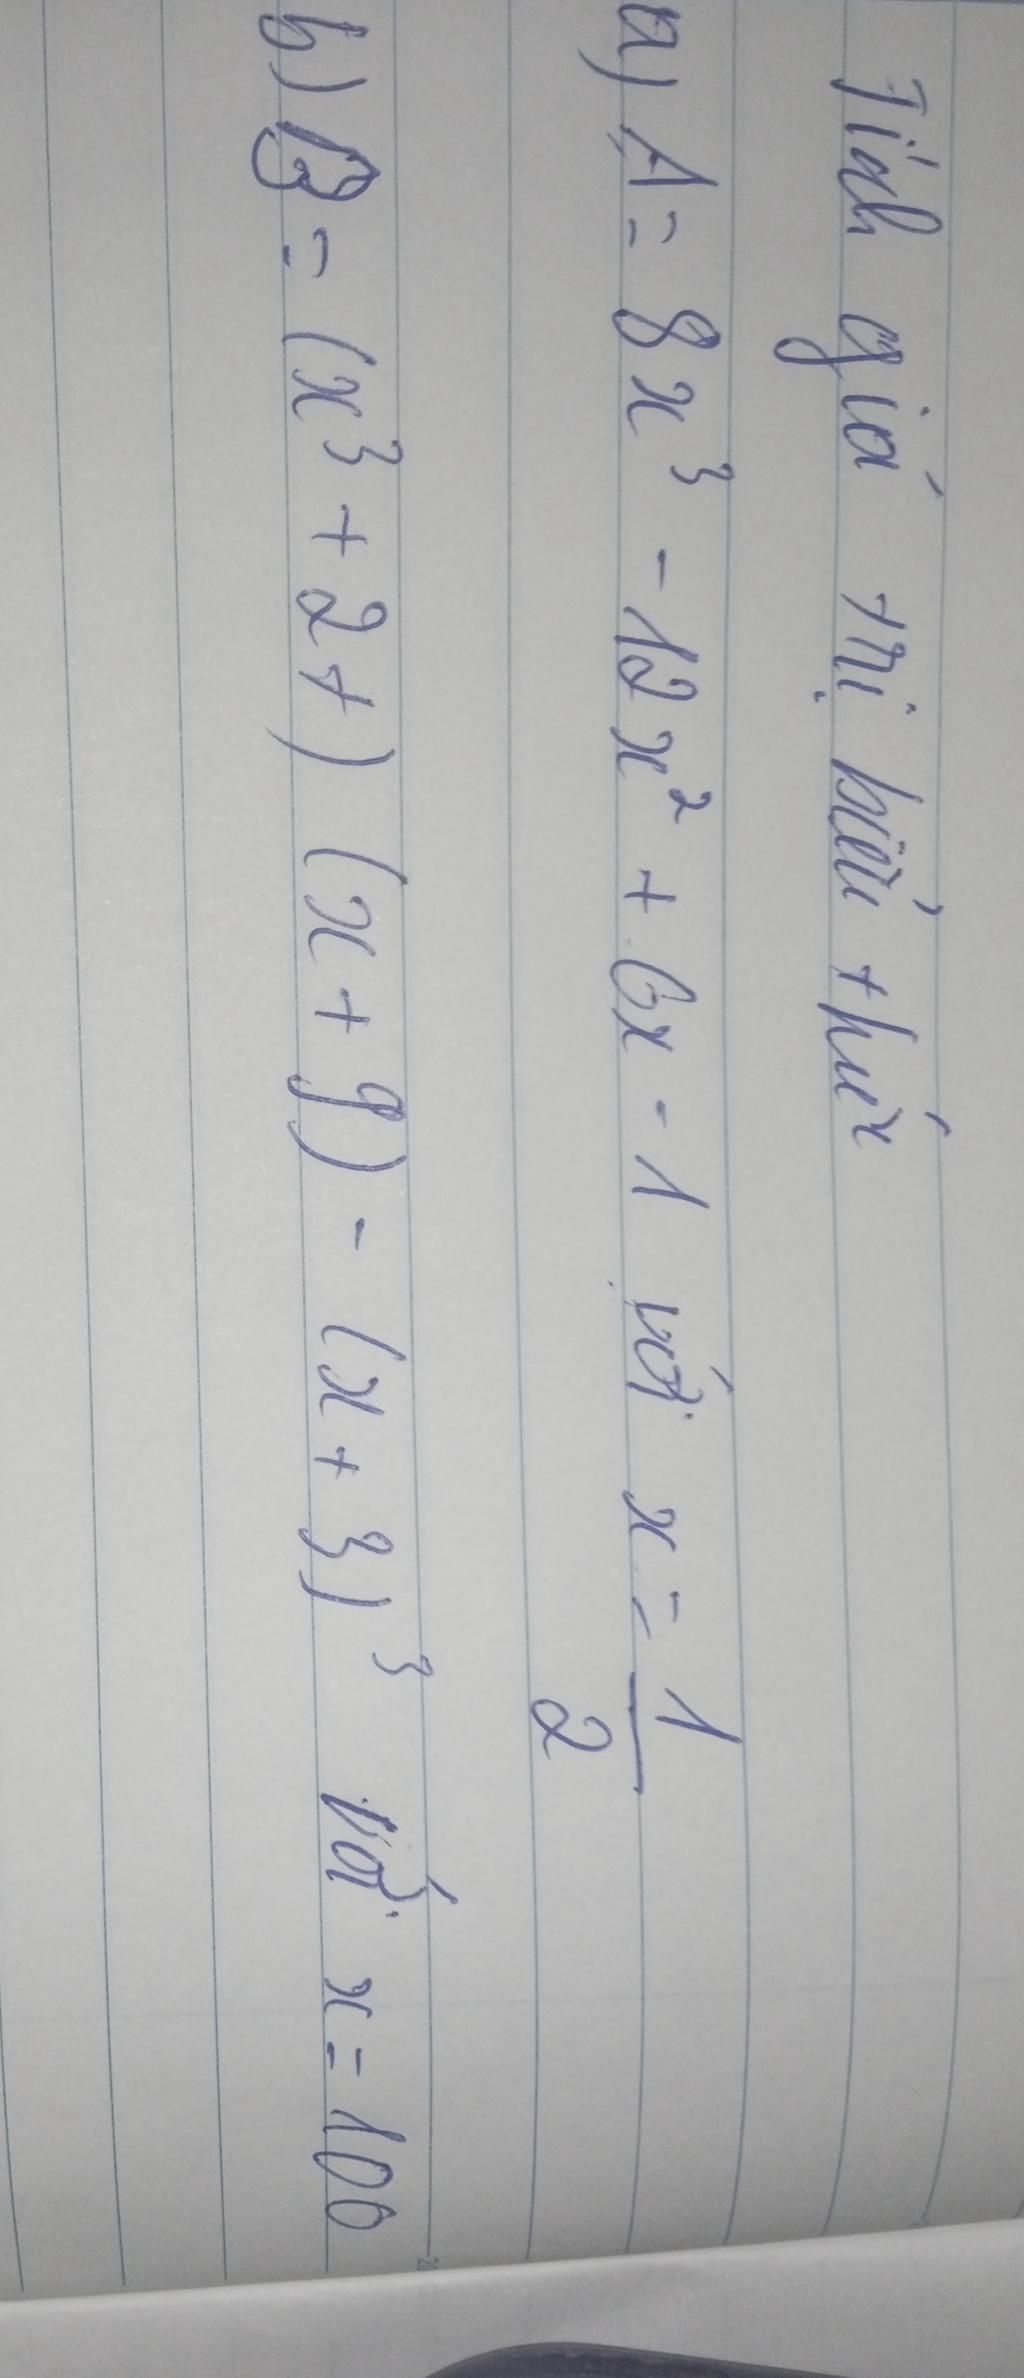 Tính giá trị biểu thức
a) A = 8x³ - 12x² + 6x - 1 với x = 1/2
b) B = (x³ + 27) (x + 9) - (x + 3)³ với x = 100